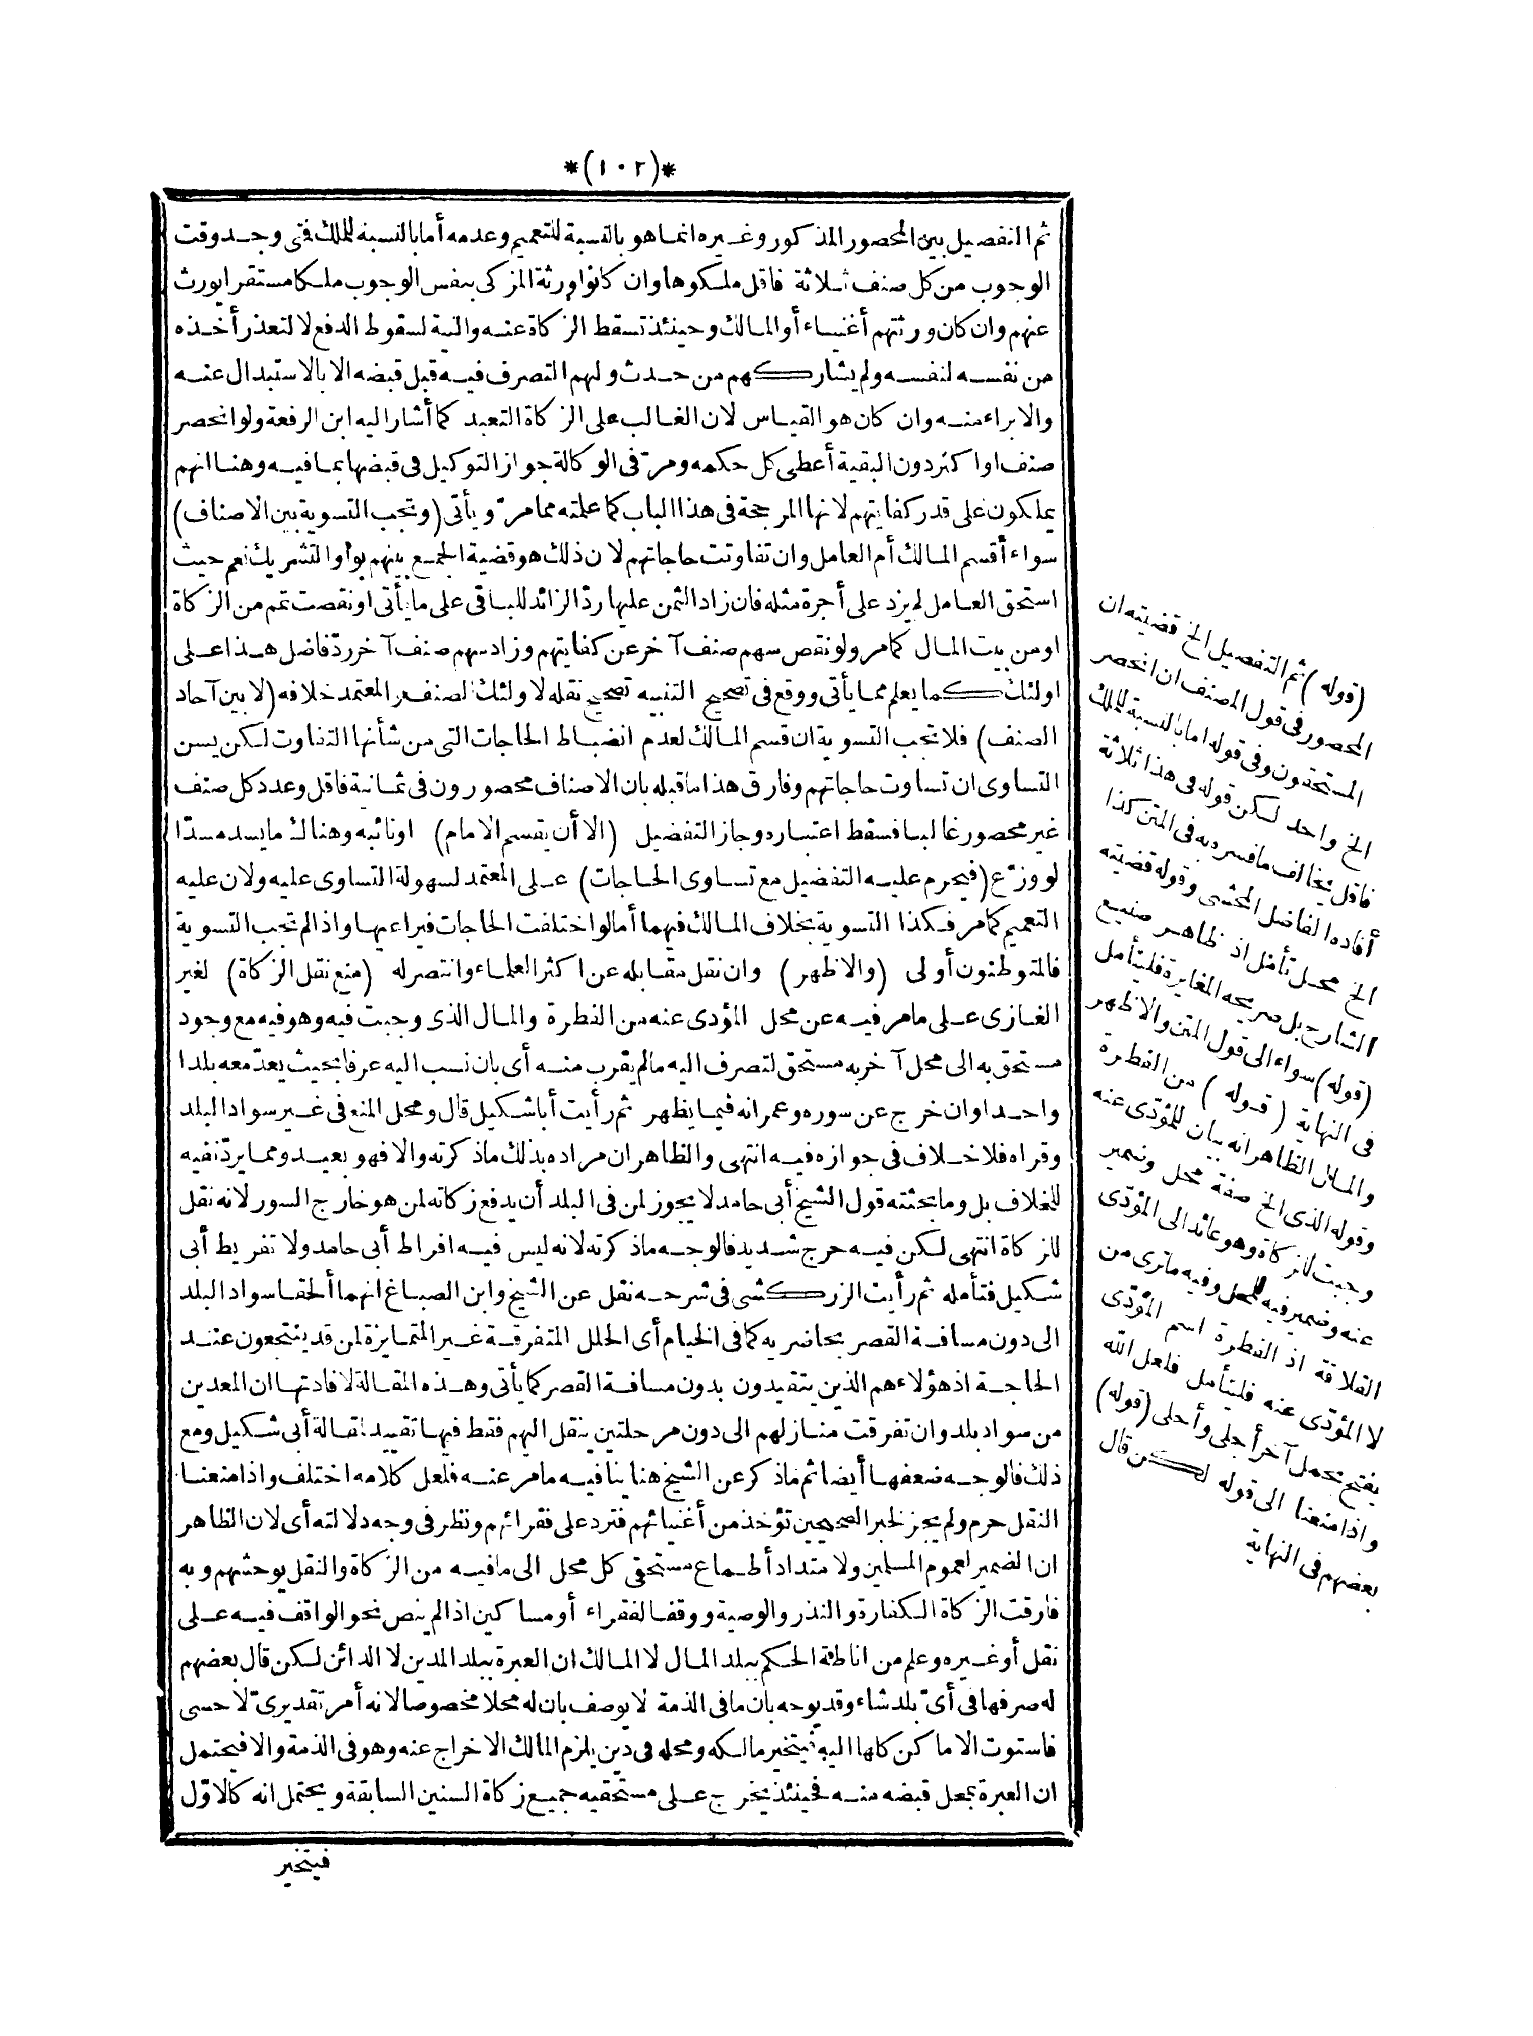 *(١٠٢)*
ثم التفصيل بين المحصور المذكور وغيره انما هو بالنسبة للتعميم وعدمه أما بالنسبة للملك فتى وجد وقت
الوجوب من كل صنف ثلاثة فاقل ملكوها وان كانوا ورثة المزكى بنفس الوجوب ملكا مستقرا يورث
عنهم وان كان ورثتهم أغنياء أو المالك وحينئذ تسقط الزكاة عنه والنية لسقوط الدفع لا لتعذر أخذه
من نفسه لنفسه ولم يشاركهم من حدث ولهم التصرف فيه قبل قبضه الا بالاستبدال عنه
والابراء منه وان كان هو القياس لان الغالب على الزكاة التعبد كما أشار اليه ابن الرفعة ولو انحصر
صنف او اكثر دون البقية أعطى كل حكمه ومرّ فى الوكالة جواز التوكيل فى قبضها بما فيه وهنا انهم
يملكون على قدر كفايتهم لانها المرجحة فى هذا الباب كما علمته ممامرّ ويأتى (وتجب التسوية بين الاصناف)
سواء أقسم المالك أم العامل وان تفاوتت حاجاتهم لان ذلك هو قضية الجمع بينهم بواو التشريك نعم حيث
استحق العامل لم يزد على أجرة مثله فان زاد الثمن عليها ردّ الزائد للباقى على ما يأتى او نقصت تمم من الزكاة
او من بيت المال كما مر ولو نقص سهم صنف آخر عن كفايتهم وزاد سهم صنف آخر ردّ فاضل هذا على
اولئك كما يعلم مما يأتى ووقع فى تصحيح التنبيه تصحيح نقله لاولئك الصنف والمعتمد خلافه (لا بين آحاد
الصنف) فلا تجب التسوية ان قسم المالك لعدم انضباط الحاجات التى من شأنها التفاوت لكن يسن
التساوى ان تساوت حاجاتهم وفارق هذا ما قبله بان الاصناف محصورون فى ثمانية فاقل وعدد كل صنف
غير محصور غالبا فسقط اعتباره وجاز التفضيل (الا أن يقسم الامام) اونائبه وهناك ما يسد مسدّا
لو وزّع (فيحرم عليه التفضيل مع تساوى الحاجات) على المعتمد لسهولة التساوى عليه ولان عليه
التعميم كما مر فكذا التسوية بخلاف المالك فيهما أما لو اختلفت الحاجات فيراعيها واذا لم تجب التسوية
فالمتوطنون أولى (والاظهر) وان نقل مقابله عن اكثر العلماء وانتصر له (منع نقل الزكاة) لغير
الغازى على ما مر فيه عن محل المؤدى عنه من الفطرة والمال الذى وجبت فيه وهو فيه مع وجود
مستحق به الى محل آخر به مستحق لتصرف اليه ما لم يقرب منه أى بان نسب اليه عرفا بحيث يعدّ معه بلدا
واحدا وان خرج عن سوره وعمرانه فيما يظهر ثم رأيت أبا شكيل قال ومحل المنع فى غير سواد البلد
وقراه فلا خلاف فى جوازه فيه انتهى والظاهر ان مراده بذلك ما ذكرته والا فهو بعيد ومما يردّ نفيه
للخلاف بل وما بحثته قول الشيخ أبى حامد لا يجوز لمن فى البلد أن يدفع زكاته لمن هو خارج السور لانه نقل
للزكاة انتهى لكن فيه حرج شديد فالوجه ما ذكرته لانه ليس فيه افراط أبى حامد ولا تفريط أبى
شكيل فتأمله ثم رأيت الزركشى فى شرحه نقل عن الشيخ وابن الصباغ انهما ألحقا سواد البلد
الى دون مسافة القصر بحاضريه كما فى الخيام أى الحلل المتفرقة غير المتمايزة لمن قد ينتجعون عند
الحاجة اذ هؤلاء هم الذين يتقيدون بدون مسافة القصر كما يأتى وهذه المقالة لافادتها ان المعدين
من سواد بلد وان تفرقت منازلهم الى دون مرحلتين ينقل اليهم فقط فيها تقييد لمقالة أبى شكيل ومع
ذلك فالوجه ضعفها أيضا ثم ماذكر عن الشيخ هنا ينافيه ما مر عنه فلعل كلامه اختلف واذا منعنا
النقل حرم ولم يجز لخبر الصحيحين تؤخذ من أغنيائهم فترد على فقرائهم ونظر فى وجه دلالته أى لان الظاهر
ان الضمير لعموم المسلمين ولامتداد أطماع مستحقى كل محل الى ما فيه من الزكاة والنقل يوحشهم وبه
فارقت الزكاة الكفارة والنذر والوصية ووقفا لفقراء أو مساكين اذا لم ينص نحو الواقف فيه على
نقل أو غيره وعلم من اناطة الحكم ببلد المال لا المالك ان العبرة ببلد المدين لا الدائن لكن قال بعضهم
له صرفها فى أىّ بلد شاء وقد يوجه بان ما فى الذمة لا يوصف بان له محلا مخصوصا لانه أمر تقديرىّ لا حسى
فاستوت الاماكن كلها اليه فيتخير مالكه ومحله فى دين يلزم المالك الاخراج عنه وهو فى الذمة والا فيحتمل
ان العبرة بمحل قبضه منه فحينئذ يخرج على مستحقيه جميع زكاة السنين السابقة ويحتمل انه كالاوّل
فيتخير
(قوله) ثم التفصيل الخ قضيته ان
المحصور فى قول المصنف ان انحصر
المستحقون وفى قوله اما بالنسبة للملك
الخ واحد لكن قوله فى هذا ثلاثة
فاقل يخالف ما فسر به فى المتن كذا
أفاده الفاضل المحشى وقوله قضيته
الخ محل تأمّل اذ ظاهر صنيع
الشارح بل صريحه المغايرة فليتأمل
(قوله) سواء الى قول المتن والاظهر
فى النهاية (قوله) من الفطرة
والمال الظاهر انه بيان للمؤدّى عنه
وقوله الذى الخ صفة محل وضمير
وجبت للزكاة وهو عائد الى المؤدّى
عنه وضمير فيه للمحل وفيه ما ترى من
القلاقة اذ الفطرة اسم المؤدّى
لا المؤدّى عنه فليتأمل فلعل الله
يفتح بمحمل آخر أجلى وأحلى (قوله)
واذا منعنا الى قوله لكن قال
بعضهم فى النهاية